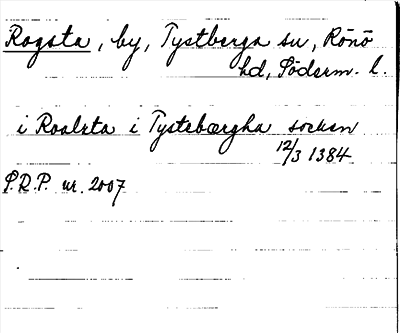 Rogsta, by, Tystberga sn, Rönö
hd, Söderm. l.
i Roalsta i Tystebærgha socken
12/3 1384
S.R.P. nr. 2007